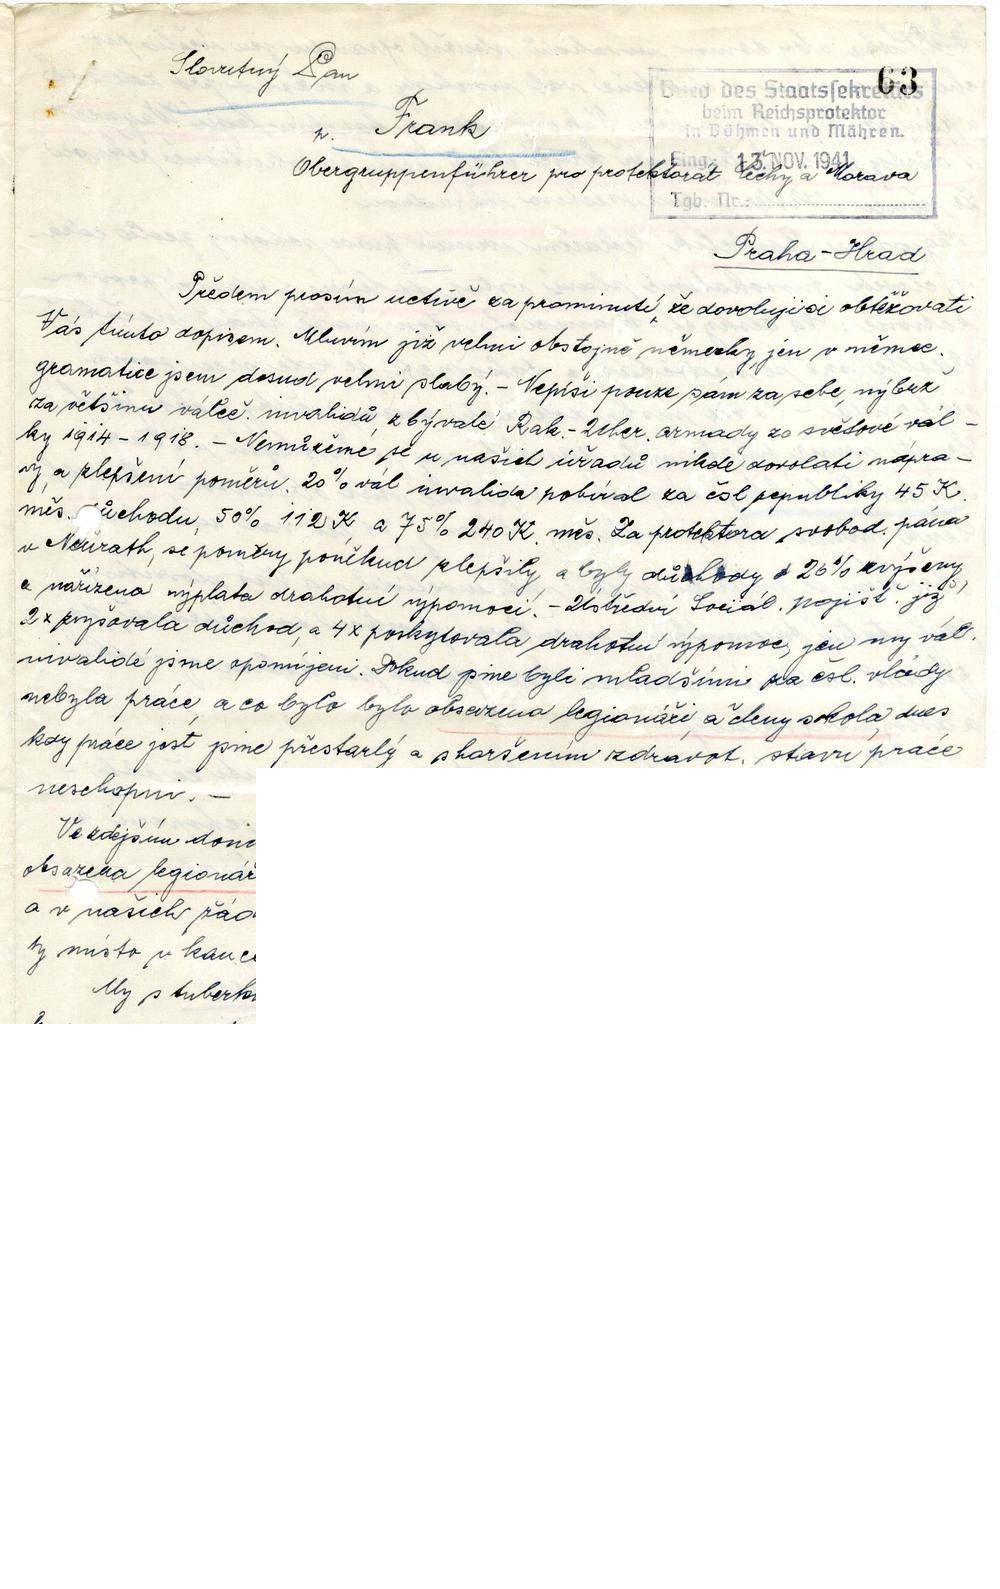 Slovutný Pan
63
Büro des Staatssekretärs
beim Reichsprotektor
in Böhmen und Mähren.
p. Frank
Eing.: 13. NOV. 1941
Obergruppenführer pro protektorát Čechy a Morava
Tgb. Nr.:
Praha-Hrad
Předem prosím uctivě za prominutí, že dovoluji si obtěžovati
Vás tímto dopisem. Mluvím již velmi obstojně německy, jen v němec.
gramatice jsem dosud velmi slabý. - Nepíši pouze sám za sebe, nýbrž
za většinu váleč. invalidů z bývalé Rak.-Uher. armady ze světové vál-
ky 1914-1918. - Nemůžeme se u našich úřadů nikde dovolati nápra-
vy, a zlepšení poměrů. 20% vál invalida pobíral za čsl republiky 45 K.
měs. důchodu, 50% 112 K a 75% 240 K. měs. Za protektora svobod. pána
v Neurath, se poměry poněkud zlepšily a byly důchody o 20% zvýšeny
a nařízena výplata drahotní výpomoci. - Ústřední Sociál. pojišť. již
2x zvyšovala důchod, a 4x poskytovala drahotní výpomoc, jen my vál.
invalidé jsme opomíjeni. Dokud jsme byli mladšími za čsl. vlády
nebyla práce, a co bylo bylo obsazeno legionáři, a členy sokola, dnes
kdy práce jest jsme přestarlý a shoršením zdravot. stavu práce
neschopni. -
Ve zdejším
obsazena legionář
a v našich řád
ty místo v kance
My s tuberk